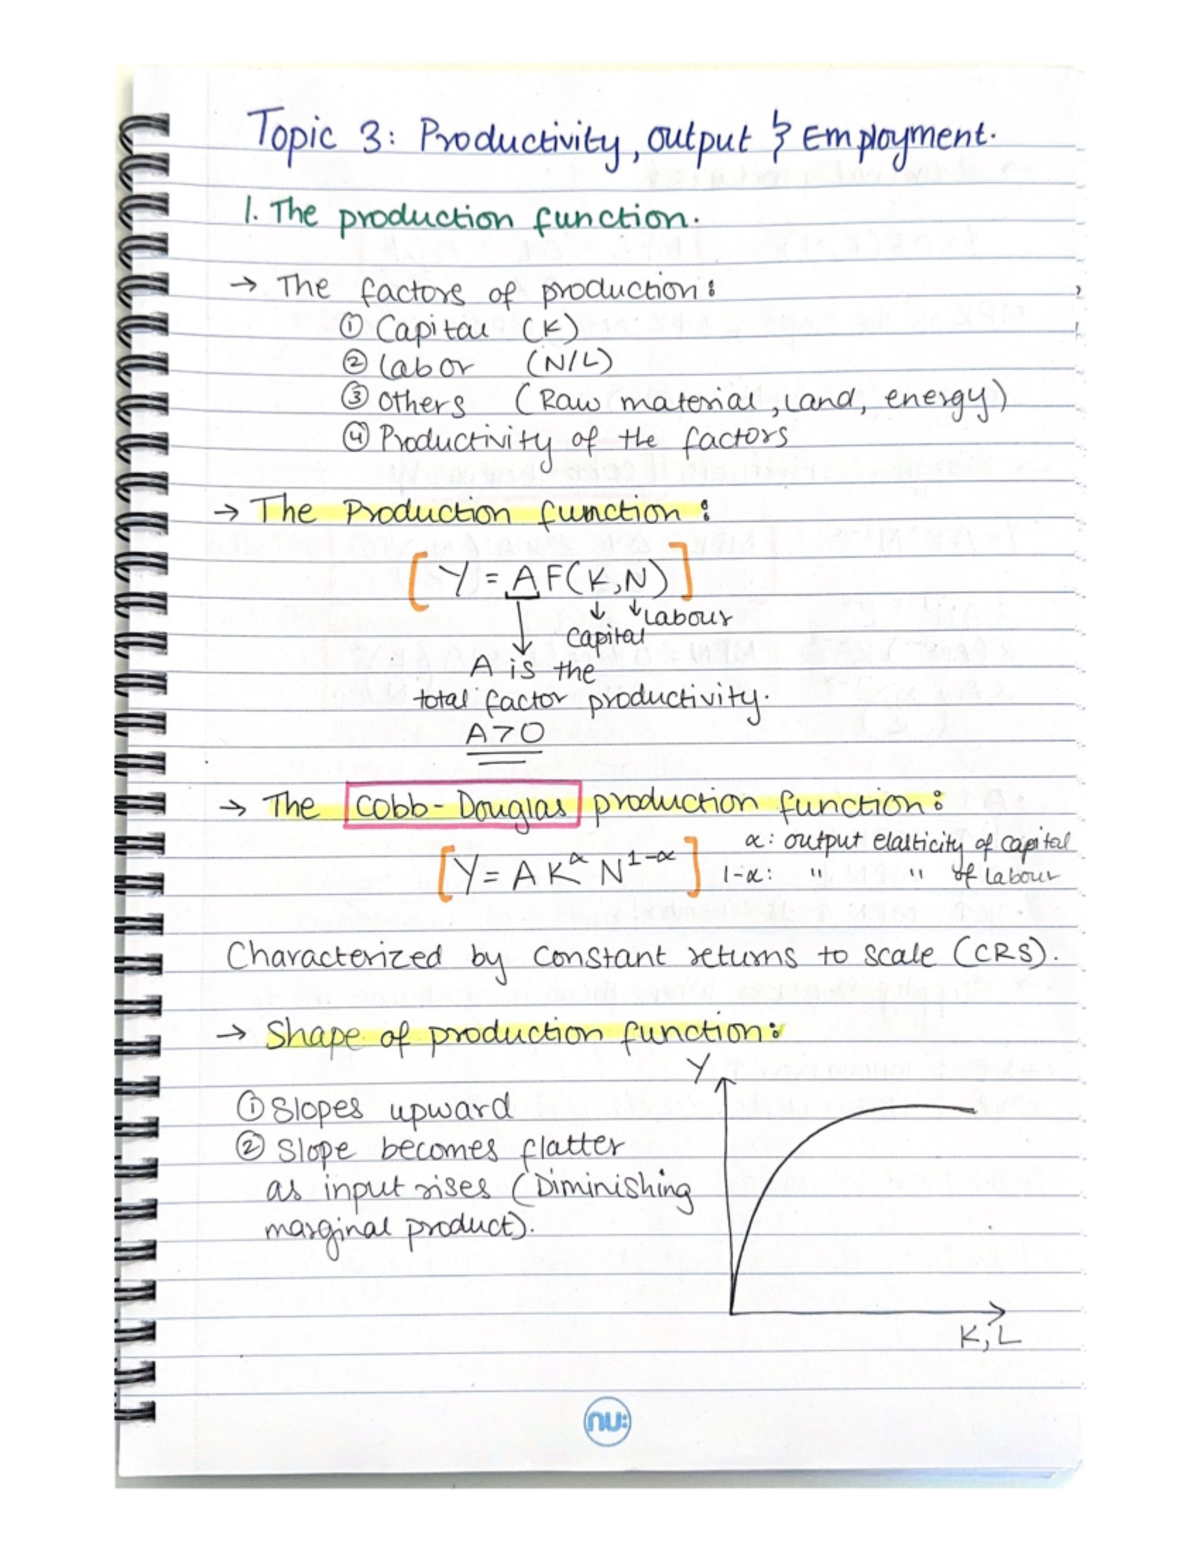 Topic 3: Productivity, output & Employment.
1. The production function.
→ The factors of production:
① Capital (K)
② Labor (N/L)
③ Others (Raw material, Land, energy)
④ Productivity of the factors
→ The Production function:
[Y = A F(K,N)]
Labour
Capital
A is the
total factor productivity.
A>0
→ The Cobb-Douglas production function:
α: output elasticity of capital
[Y = A K^α N^1-α]
1-α: " " of Labour
Characterized by constant returns to scale (CRS).
→ Shape of production function:
Y
① Slopes upward
② Slope becomes flatter
as input rises (Diminishing
marginal product).
K, L
nu: